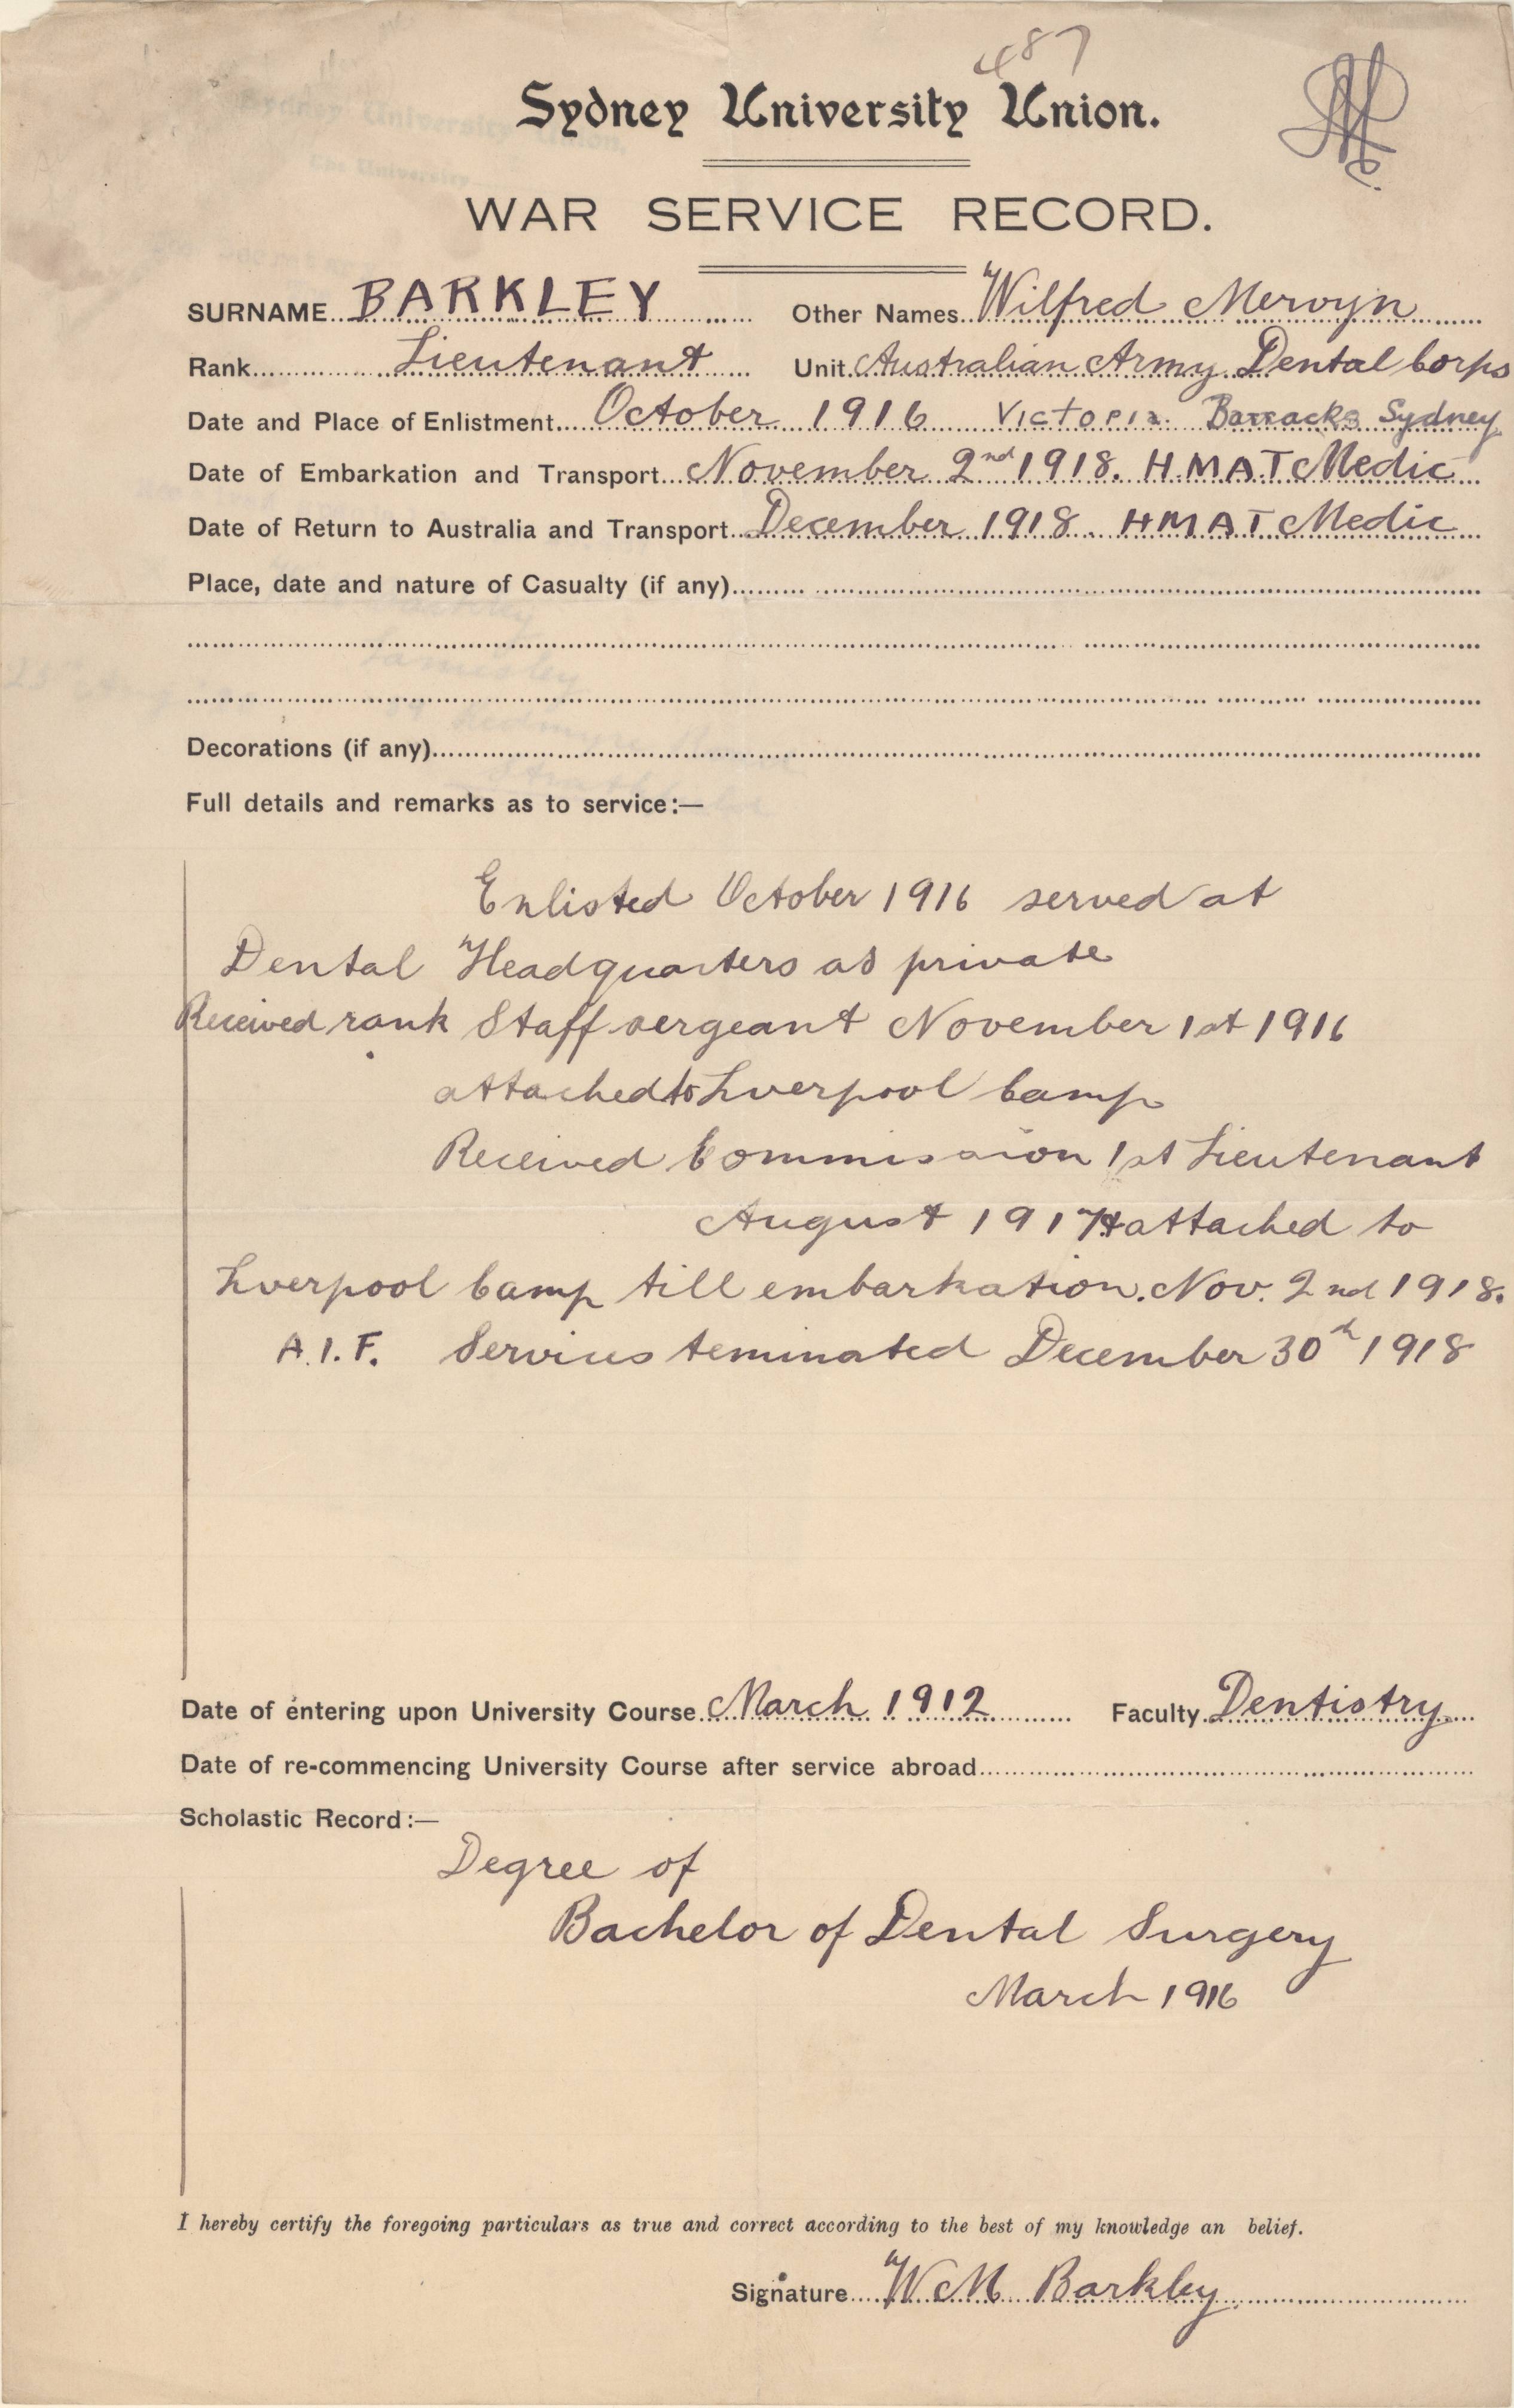 487
Sydney University Union.
WAR SERVICE RECORD.
SURNAME BARKLEY Other Names Wilfred Mervyn
Rank Lieutenant Unit Australian Army Dental Corps
Date and Place of Enlistment October 1916 Victoria Barracks Sydney
Date of Embarkation and Transport November 2nd 1918. H.M.A.T Medic
Date of Return to Australia and Transport December 1918. HMAT Medic
Place, date and nature of Casualty (if any)
Decorations (if any)
Full details and remarks as to service:—
Enlisted October 1916 served at
Dental Headquarters as private
Received rank Staff sergeant November 1st 1916
attached to Liverpool Camp
Received Commission 1st Lieutenant
August 1917 & attached to
Liverpool Camp till embarkation. Nov. 2nd 1918.
A.I.F. Services teminated December 30th 1918
Date of entering upon University Course March 1912 Faculty Dentistry
Date of re-commencing University Course after service abroad
Scholastic Record:—
Degree of
Bachelor of Dental Surgery
March 1916
I hereby certify the foregoing particulars as true and correct according to the best of my knowledge an belief.
Signature W M Barkley